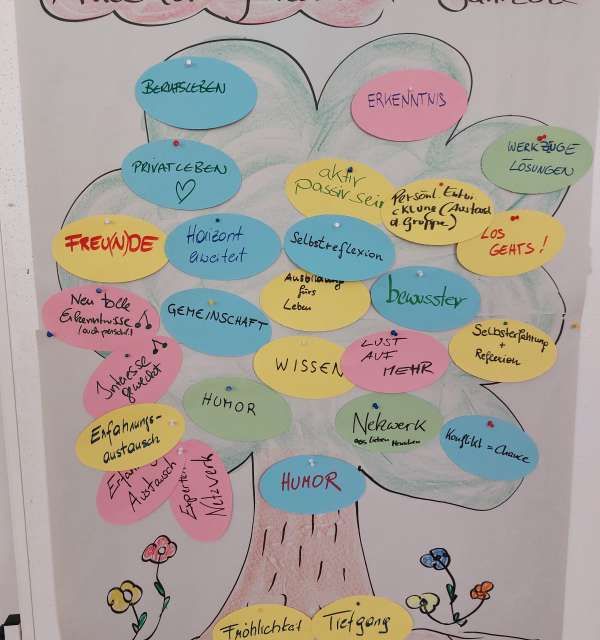 BERUFSLEBEN
ERKENNTNIS
WERKZEUGE
LÖSUNGEN
PRIVATLEBEN
aktiv
passiv sein
Persönl. Entwi
cklung (Austausch
d. Gruppe)
FREU(N)DE
Horizont
erweitert
Selbstreflexion
LOS
GEHTS!
Ausbildung
fürs
Leben
bewusster
Neu tolle
Erkenntnisse
(auch persönl.)
GEMEINSCHAFT
Selbsterfahrung
+
Reflexion
WISSEN
LUST
AUF
MEHR
Interesse
geweckt
HUMOR
Netzwerk
aus lieben Menschen
Konflikt = Chance
Erfahrungs-
austausch
Austausch
Experten
Netzwerk
HUMOR
Fröhlichkeit
Tiefgang